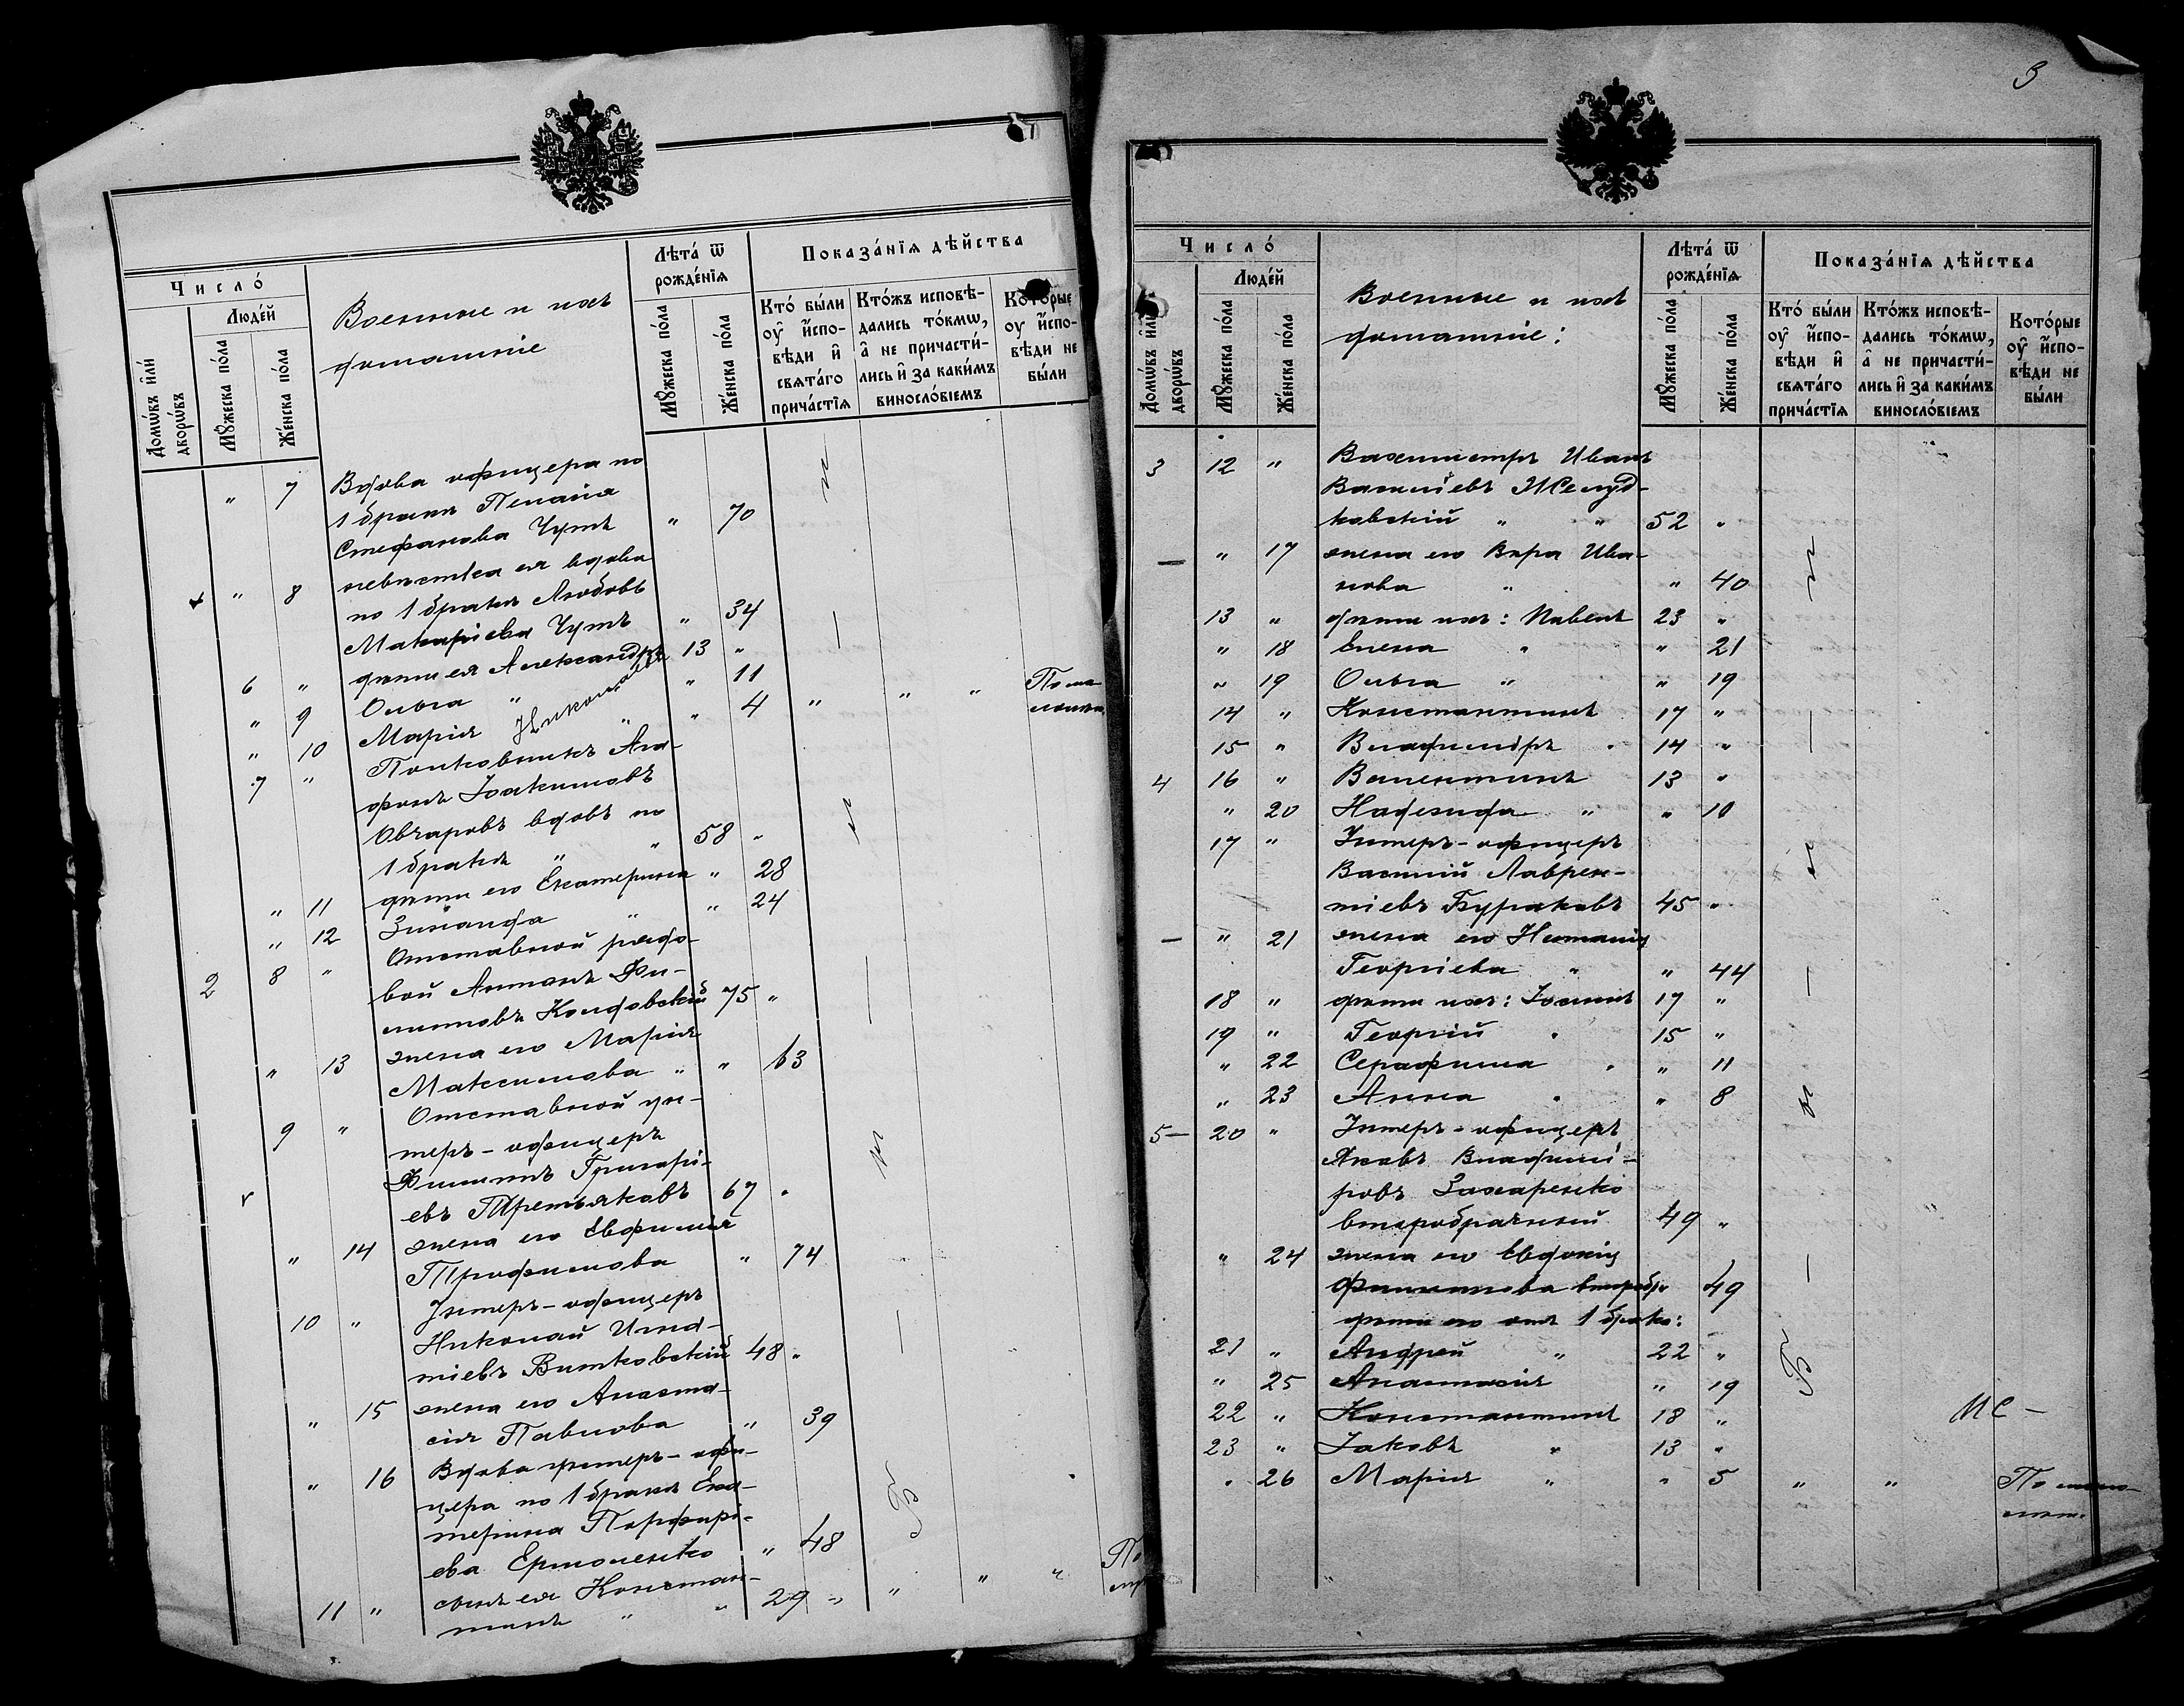 Число́
Люде́й
Домѡ́въ и҆лѝ дворѡ́въ
Мꙋ́жеска по́ла
Же́нска по́ла
Военные и ихъ
домашніе
Лѣта̀ ѿ
рожде́нїѧ
Мꙋ́жеска по́ла
Же́нска по́ла
Показа́нїѧ дѣ́йства
Кто̀ бы́ли
ѹ҆ и҆спо-
вѣди и҆
свѧта́го
прича́стїѧ
Кто́жъ исповѣ-
дались то́кмѡ,
а҆ не причасти́-
лись и҆ за каки́мъ
винословіемъ
Кото́рые
ѹ҆ и҆спо-
вѣди не
бы́ли
" 7 Вдова офицера по
1 бракѣ Пелагія
Стефанова Чутъ " 70
" 8 невѣстка ея вдова
по 1 бракѣ Любовь
Макаріева Чутъ " 34
6 " дѣти ея Александръ 13 "
" 9 Ольга " " 11
" 10 Марія Николаевы " " 4 " " " По ма-
лолѣт.
7 " Полковникъ Ага-
фонъ Іоакимовъ
Овчаровъ вдовъ по
1 бракѣ " " 58 "
" 11 дѣти его Екатерина " 28
" 12 Зинаида " " 24
2 8 " Отставной рядо-
вой Антонъ Фи-
липповъ Кондовскій 75 "
" 13 жена его Марія
Максимова " " 63
9 " Отставной ун-
теръ-офицеръ
Филиппъ Григорі-
евъ Третьяковъ 67 "
" 14 жена его Евфимія
Трофимова " 74
10 " Унтеръ-офицеръ
Николай Игна-
тіевъ Витковскій 48 "
" 15 жена его Анаста-
сія Павлова " 39
" 16 Вдова унтеръ-офи-
цера по 1 бракѣ Ека-
терина Порфирі-
ева Ермоленко " 48
11 " сынъ ея Констан-
тинъ " " 29 " " " " По
3
Число́
Люде́й
Домѡ́въ и҆лѝ дворѡ́въ
Мꙋ́жеска по́ла
Же́нска по́ла
Военные и ихъ
домашніе:
Лѣта̀ ѿ
рожде́нїѧ
Мꙋ́жеска по́ла
Же́нска по́ла
Показа́нїѧ дѣ́йства
Кто̀ бы́ли
ѹ҆ и҆спо-
вѣди и҆
свѧта́го
прича́стїѧ
Кто́жъ исповѣ-
дались то́кмѡ,
а҆ не причасти́-
лись и҆ за каки́мъ
винословіемъ
Кото́рые
ѹ҆ и҆спо-
вѣди не
бы́ли
3 12 " Вахмистръ Иванъ
Василіевъ Желуд-
ковскій " " 52 "
" 17 жена его Вѣра Ива-
нова " " 40
13 " дѣти ихъ: Павелъ 23 "
" 18 Елена " " 21
" 19 Ольга " " 19
14 " Константинъ 17 "
15 " Владиміръ " 14 "
4 16 " Валентинъ 13 "
" 20 Надежда " " 10
17 " Унтеръ-офицеръ
Василій Лаврен-
тіевъ Бураковъ 45 "
" 21 жена его Наталія
Георгіева " " 44
18 " дѣти ихъ: Іоаннъ 17 "
19 " Георгій " 15 "
" 22 Серафима " " 11
" 23 Анна " " 8
5 20 " Унтеръ-офицеръ
Яковъ Владимі-
ровъ Захаренко
второбрачный 49 "
" 24 жена его Евдокія
Филиппова второбр. 49
дѣти его отъ 1 брака:
21 " Андрей " 22 "
" 25 Анастасія " 19
22 " Константинъ 18 " МС -
23 " Іаковъ " 13 "
" 26 Марія " " 5 " " По мало-
лѣт.